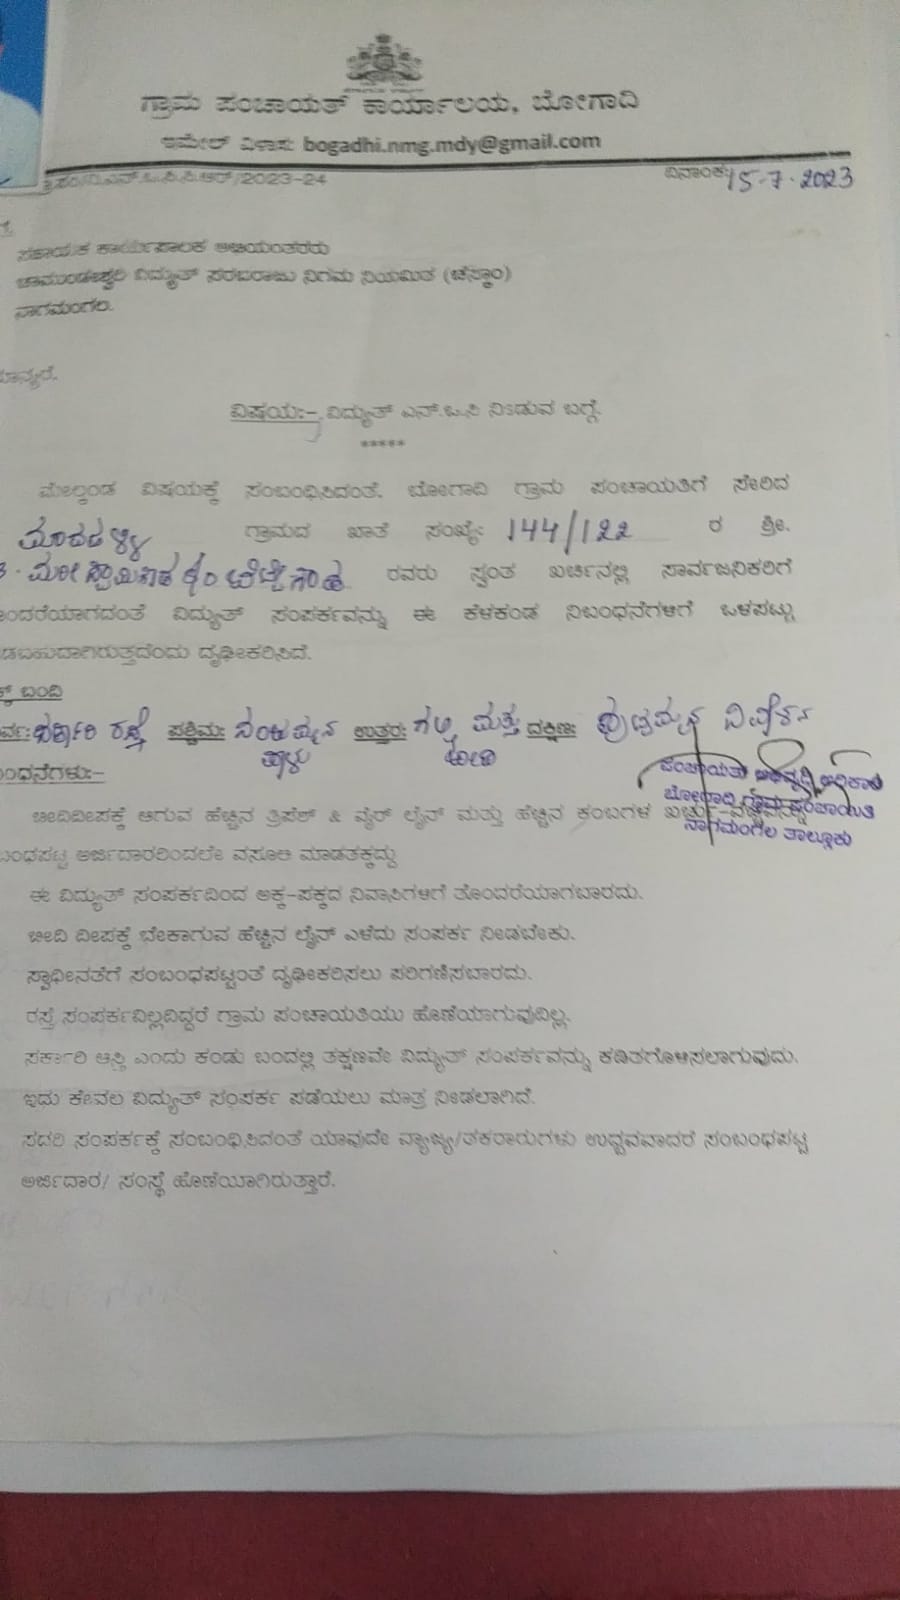 ಗ್ರಾಮ ಪಂಚಾಯತ್ ಕಾರ್ಯಾಲಯ, ಬೋಗಾದಿ
ಇಮೇಲ್ ವಿಳಾಸ: bogadhi.nmg.mdy@gmail.com
/2023-24 ದಿನಾಂಕ: 15-7-2023
ಸಹಾಯಕ ಕಾರ್ಯಪಾಲಕ ಅಭಿಯಂತರರು
ಚಾಮುಂಡೇಶ್ವರಿ ವಿದ್ಯುತ್ ಸರಬರಾಜು ನಿಗಮ ನಿಯಮಿತ (ಚೆಸ್ಕಾಂ)
ನಾಗಮಂಗಲ.
ಮಾನ್ಯರೆ.
ವಿಷಯ:- ವಿದ್ಯುತ್ ಎನ್.ಒ.ಸಿ ನೀಡುವ ಬಗ್ಗೆ.
*****
ಮೇಲ್ಕಂಡ ವಿಷಯಕ್ಕೆ ಸಂಬಂಧಿಸಿದಂತೆ, ಬೋಗಾದಿ ಗ್ರಾಮ ಪಂಚಾಯತಿಗೆ ಸೇರಿದ
ಗ್ರಾಮದ ಖಾತೆ ಸಂಖ್ಯೆ: 144/122 ರ ಶ್ರೀ.
ರವರು ಸ್ವಂತ ಖರ್ಚಿನಲ್ಲಿ ಸಾರ್ವಜನಿಕರಿಗೆ
ಂದರೆಯಾಗದಂತೆ ವಿದ್ಯುತ್ ಸಂಪರ್ಕವನ್ನು ಈ ಕೆಳಕಂಡ ನಿಬಂಧನೆಗಳಿಗೆ ಒಳಪಟ್ಟು
ಡಬಹುದಾಗಿರುತ್ತದೆಂದು ದೃಢೀಕರಿಸಿದೆ.
ಕ್ ಬಂದಿ
ರ್ವ: ಸರ್ಕಾರಿ ರಸ್ತೆ ಪಶ್ಚಿಮ: ಉತ್ತರ: ಗಲ್ಲಿ ಮತ್ತು ದಕ್ಷಿಣ:
ಬಂಧನೆಗಳು:-
ಪಂಚಾಯತಿ ಅಭಿವೃದ್ಧಿ ಅಧಿಕಾರಿ
ಬೋಗಾದಿ ಗ್ರಾಮ ಪಂಚಾಯಿತಿ
ನಾಗಮಂಗಲ ತಾಲ್ಲೂಕು
ಬೀದಿದೀಪಕ್ಕೆ ಆಗುವ ಹೆಚ್ಚಿನ ತ್ರಿಪೆಶ್ & ವೈರ್ ಲೈನ್ ಮತ್ತು ಹೆಚ್ಚಿನ ಕಂಬಗಳ ಖರ್ಚು-ವೆಚ್ಚವನ್ನು
ಬಂಧಪಟ್ಟ ಅರ್ಜಿದಾರರಿಂದಲೇ ವಸೂಲಿ ಮಾಡತಕ್ಕದ್ದು
ಈ ವಿದ್ಯುತ್ ಸಂಪರ್ಕದಿಂದ ಅಕ್ಕ-ಪಕ್ಕದ ನಿವಾಸಿಗಳಿಗೆ ತೊಂದರೆಯಾಗಬಾರದು.
ಬೀದಿ ದೀಪಕ್ಕೆ ಬೇಕಾಗುವ ಹೆಚ್ಚಿನ ಲೈನ್ ಎಳೆದು ಸಂಪರ್ಕ ನೀಡಬೇಕು.
ಸ್ವಾಧೀನತೆಗೆ ಸಂಬಂಧಪಟ್ಟಂತೆ ದೃಢೀಕರಿಸಲು ಪರಿಗಣಿಸಬಾರದು.
ರಸ್ತೆ ಸಂಪರ್ಕವಿಲ್ಲವಿದ್ದರೆ ಗ್ರಾಮ ಪಂಚಾಯತಿಯು ಹೊಣೆಯಾಗುವುದಿಲ್ಲ.
ಸರ್ಕಾರಿ ಆಸ್ತಿ ಎಂದು ಕಂಡು ಬಂದಲ್ಲಿ ತಕ್ಷಣವೇ ವಿದ್ಯುತ್ ಸಂಪರ್ಕವನ್ನು ಕಡಿತಗೊಳಿಸಲಾಗುವುದು.
ಇದು ಕೇವಲ ವಿದ್ಯುತ್ ಸಂಪರ್ಕ ಪಡೆಯಲು ಮಾತ್ರ ನೀಡಲಾಗಿದೆ.
ಸದರಿ ಸಂಪರ್ಕಕ್ಕೆ ಸಂಬಂಧಿಸಿದಂತೆ ಯಾವುದೇ ವ್ಯಾಜ್ಯ/ತಕರಾರುಗಳು ಉದ್ಭವವಾದರೆ ಸಂಬಂಧಪಟ್ಟ
ಅರ್ಜಿದಾರ/ ಸಂಸ್ಥೆ ಹೊಣೆಯಾಗಿರುತ್ತಾರೆ.